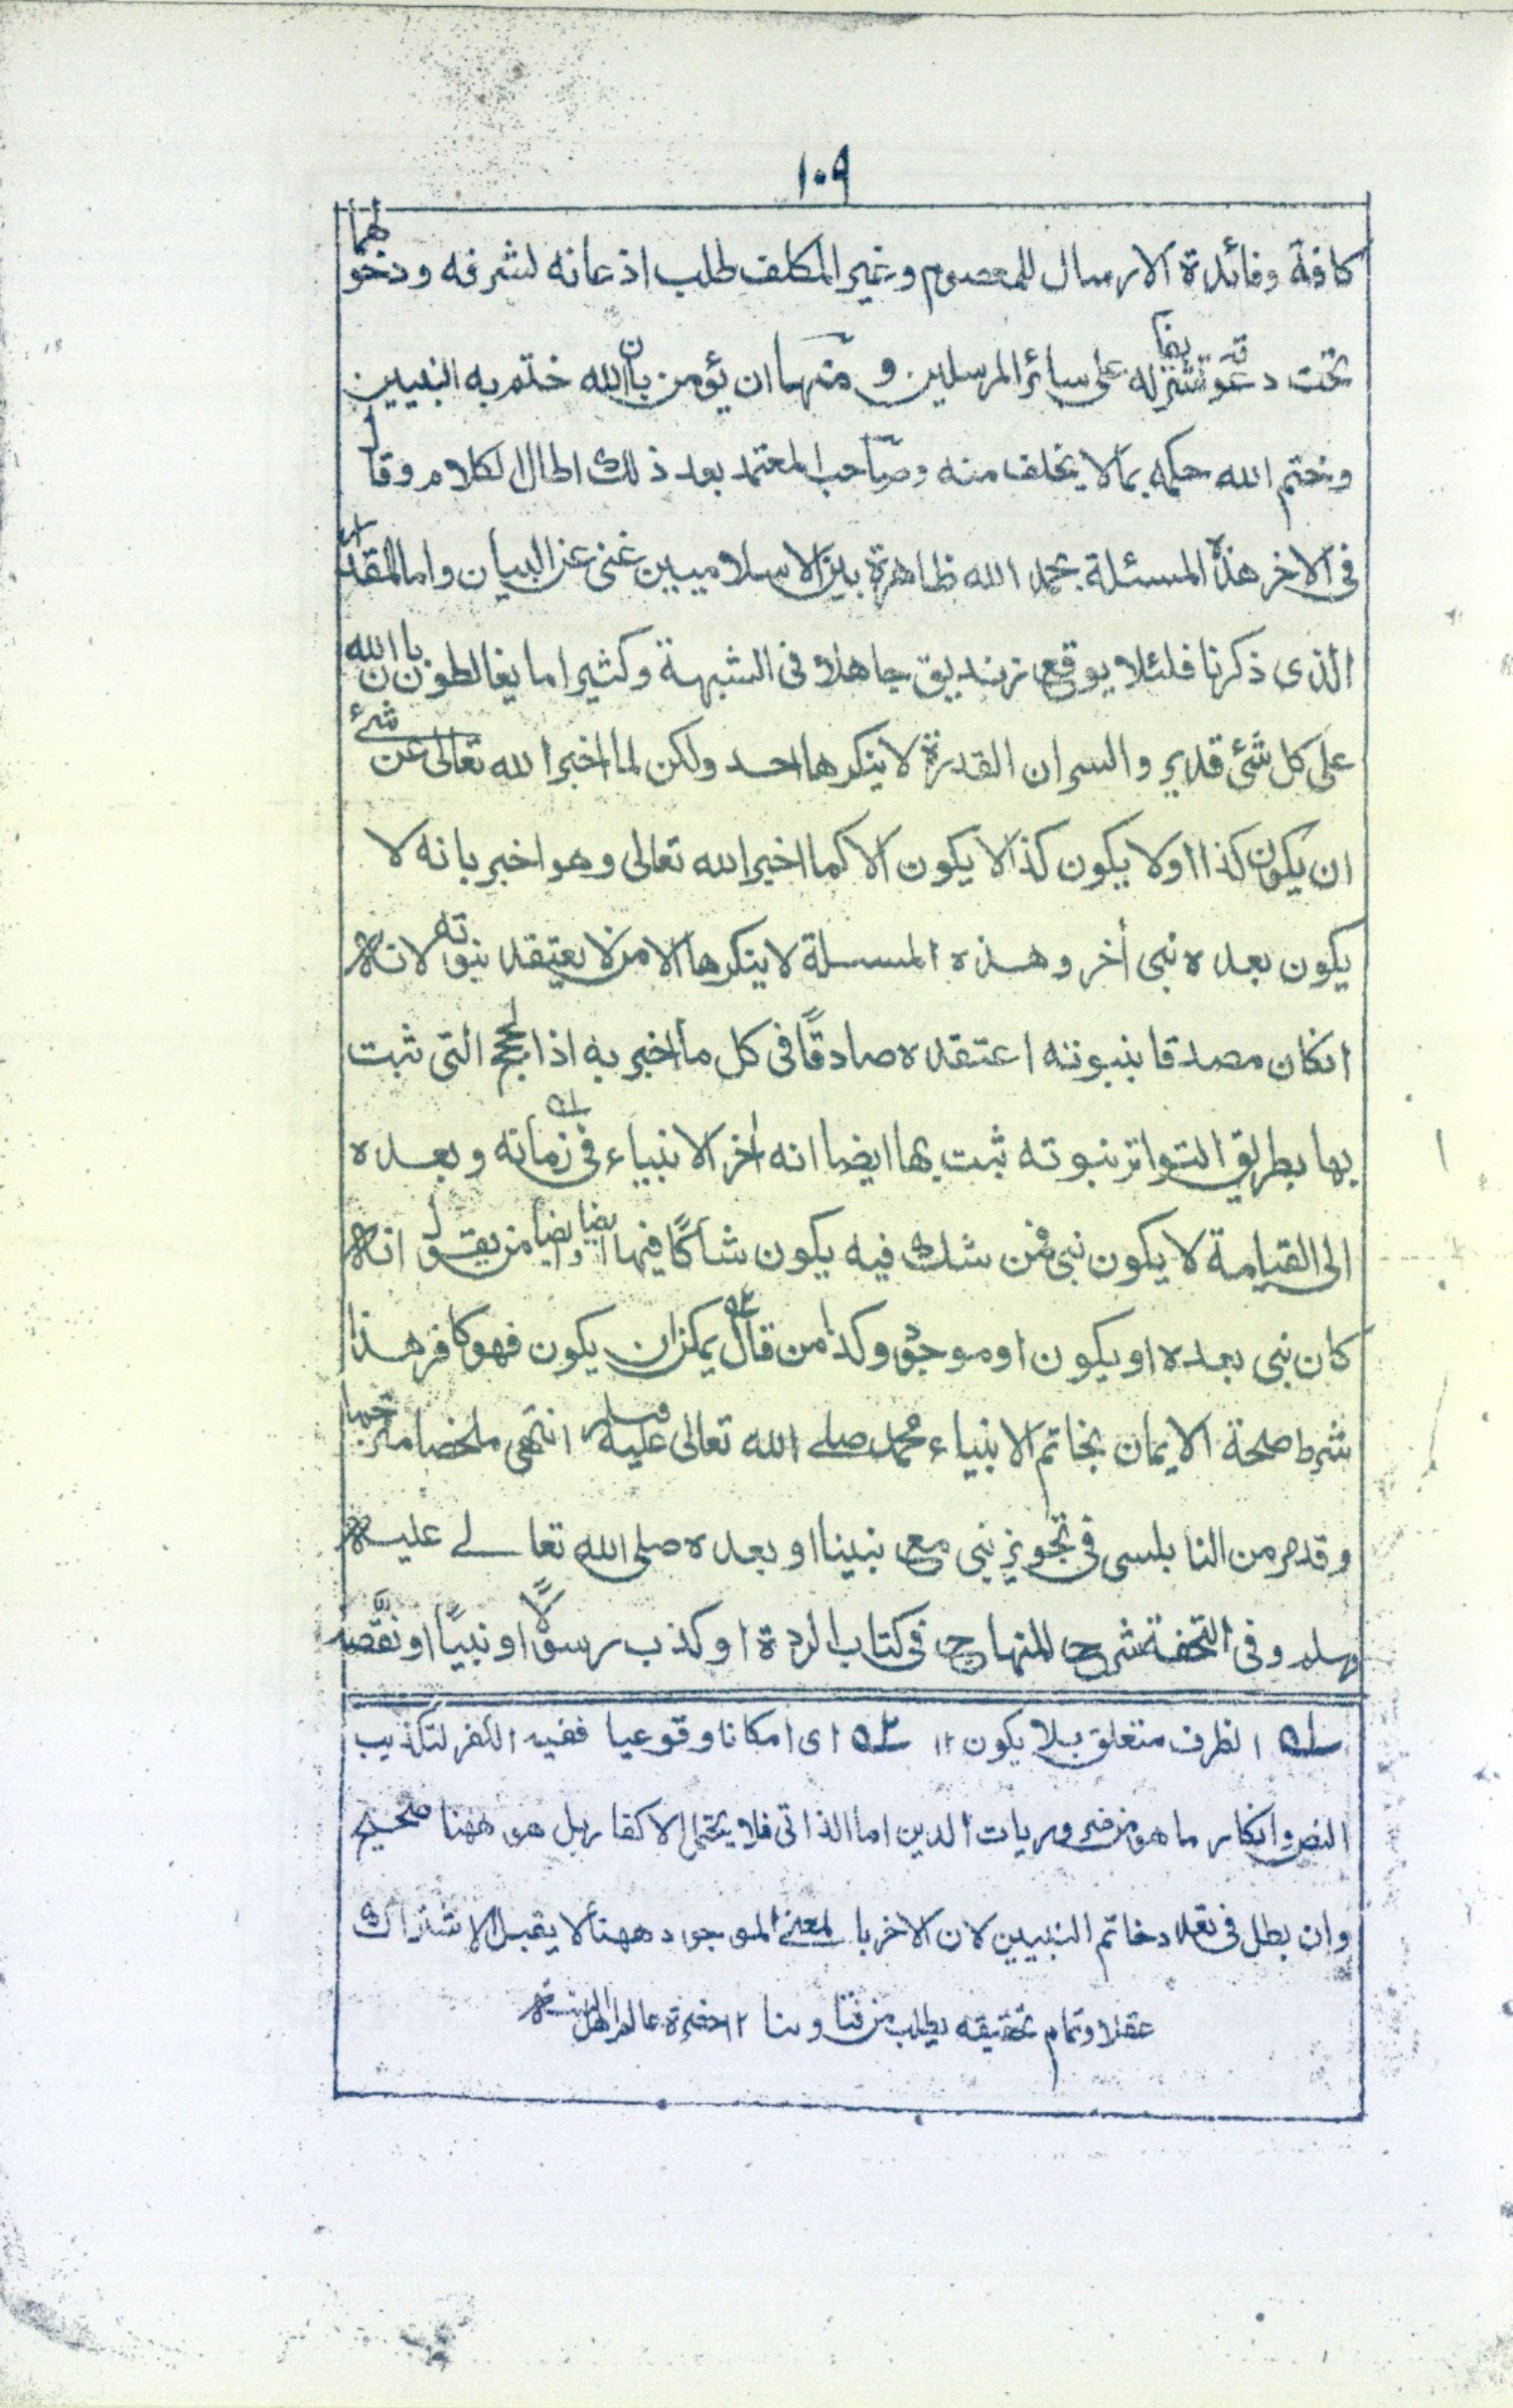 ١٠٩
كافة وفائدة الارسال للمعصوم وغير المكلف طلب اذعانه لشرفه ودخولهما
تحت دعوته تشريفا له على سائر المرسلين ومنها ان يؤمن بان الله ختم به النبيين
وختم الله حكمه بما لا يخلف منه وصاحب المعتمد بعد ذلك اطال الكلام وقال
فى الاخر هذه المسئلة بحمد الله ظاهرة بين الاسلاميين غنى عن البيان واما المقدار
الذى ذكرنا فلئلا يوقع زنديق جاهلا فى الشبهة وكثيرا ما يغالطون بان الله
على كل شئ قدير والسر ان القدرة لا ينكرها احد ولكن لما اخبر الله تعالى عن شئ
ان يكون كذا او لا يكون كذا لا يكون الا كما اخبر الله تعالى وهو اخبر بانه لا
يكون بعده نبى أخر وهذه المسئلة لا ينكرها الا من لا يعتقد نبوته لانه
انكان مصدقا بنبوته اعتقده صادقًا فى كل ما اخبر به اذا لحجج التى ثبت
بها بطريق التواتر نبوته ثبت بها ايضا انه أخر الانبياء فى زمانه وبعده
الى القيامة لا يكون نبى فمن شك فيه يكون شاكًا فيها ايضا وايضا من يقول انه
كان نبى بعده او يكون او موجود وكذا من قال يمكن ان يكون فهو كافر هذا
شرط صحة الايمان بخاتم الانبياء محمد صلے الله تعالى عليه وسلم انتهى ملخصا مترجما
وقد مر من النابلسى فى تجويز نبى مع نبينا او بعده صلى الله تعالے عليه
وسلم وفى التحفة شرح المنهاج فى كتاب الردة او كذب رسولًا او نبيًا او نقَّصه
ـلـه الظرف متعلق بلا يكون ١٢ ـلـه اى امكانا وقوعيا ففيه الكفر لتكذيب
النص وانكار ما هو من ضروريات الدين اما الذاتى فلا يحتمل الاكفار بل هو ههنا صحيح
وان بطل فى تعدد خاتم النبيين لان الاخر بالمعنے الموجود ههنا لا يقبل الاشتراك
عقلا وتمام تحقيقه يطلب من فتاونا ١٢ حضرة عالم اهل السنة